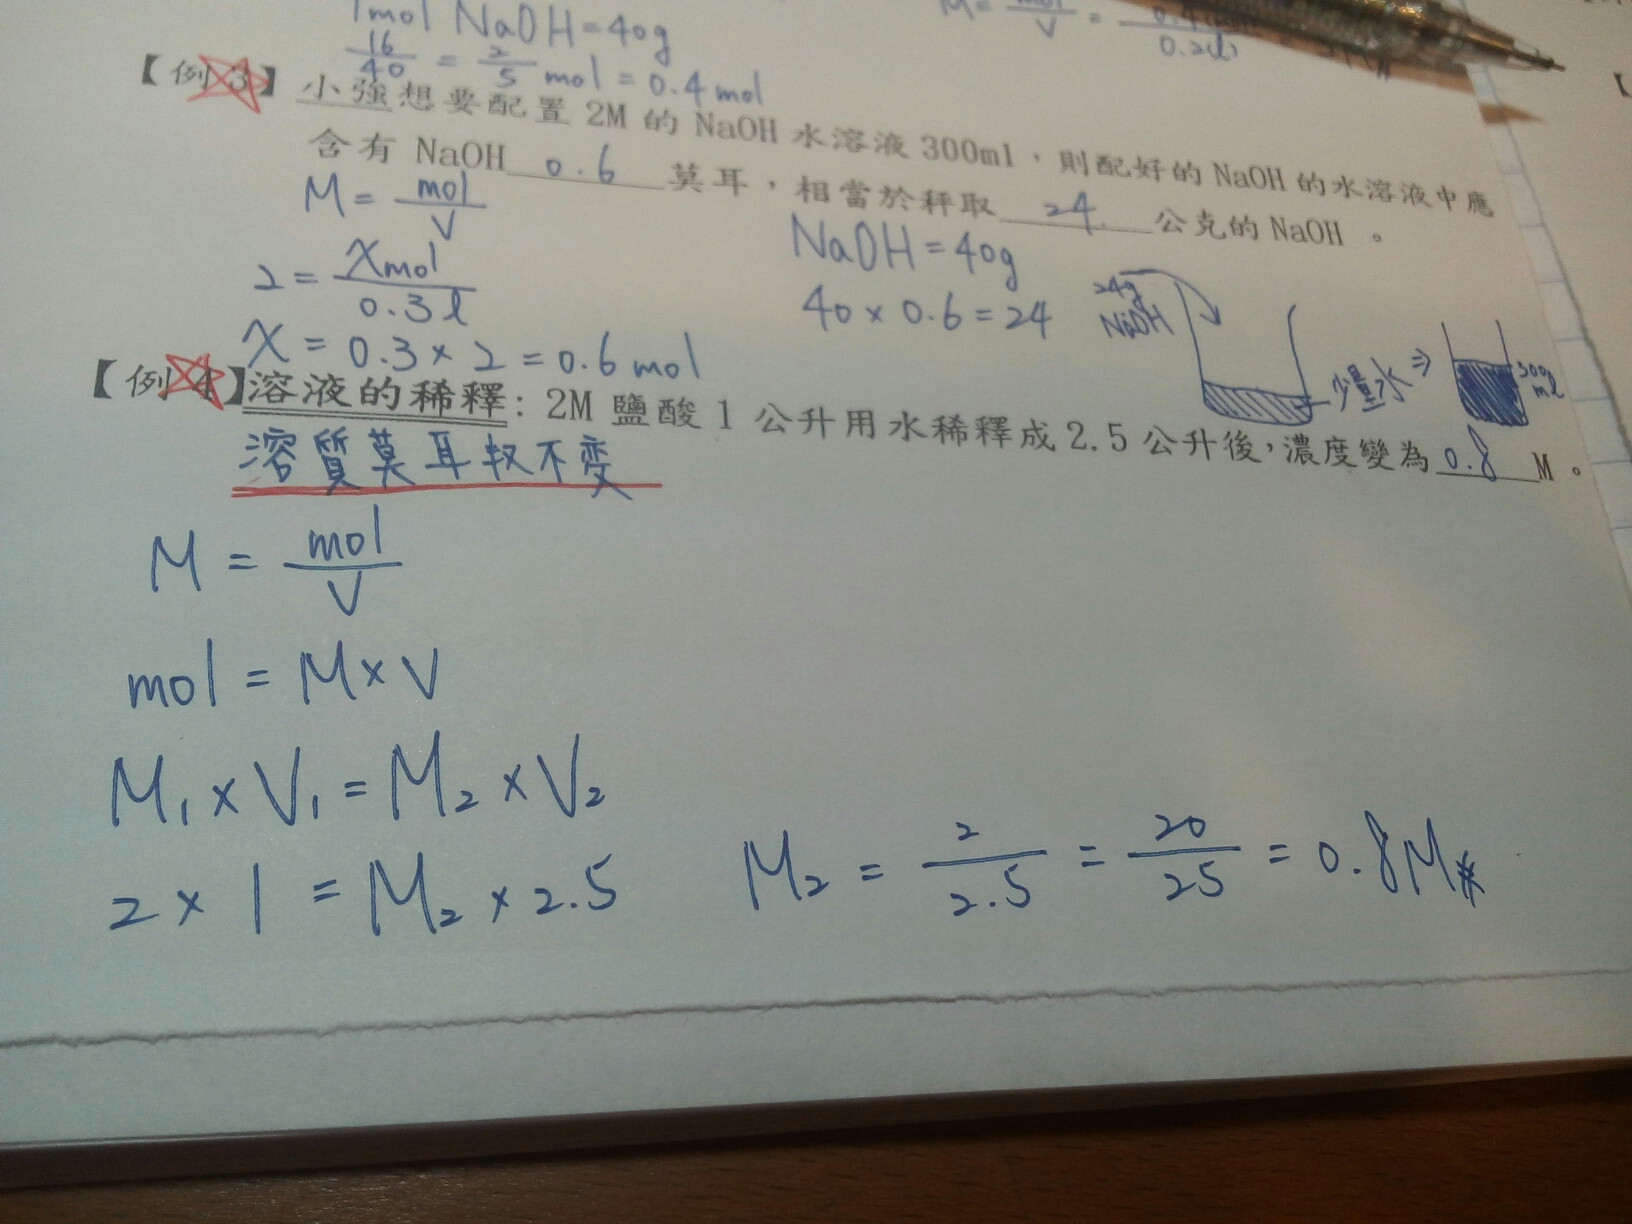 1mol NaOH=40g
16/40 = 2/5 mol = 0.4mol
M= mol/V =
0.2(l)
【例3】小強想要配置 2M 的 NaOH 水溶液 300ml，則配好的 NaOH 的水溶液中應
含有 NaOH 0.6 莫耳，相當於秤取 24 公克的 NaOH 。
M= mol/V
NaOH=40g
2= Xmol/0.3l
40×0.6=24
24g
NaOH
少量水 ⇒
300
ml
X = 0.3×2=0.6mol
【例4】溶液的稀釋: 2M 鹽酸 1 公升用水稀釋成 2.5 公升後,濃度變為 0.8 M 。
溶質莫耳数不変
M = mol/V
mol = M×V
M₁×V₁=M₂×V₂
2×1 = M₂×2.5
M₂ = 2/2.5 = 20/25 = 0.8M